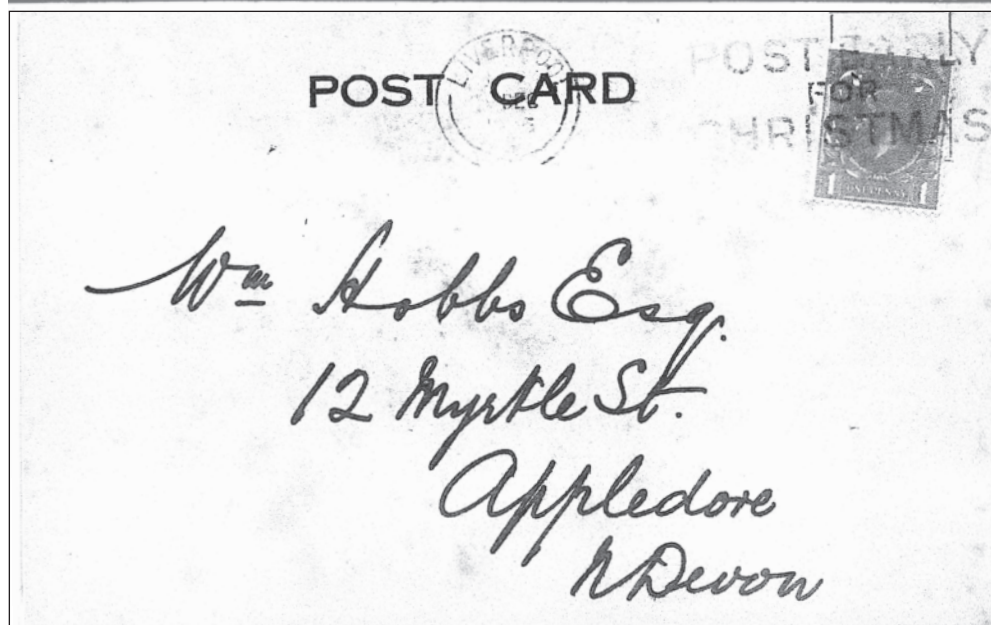 POST CARD
LIVERPOOL
DEC
POST EARLY
FOR
CHRISTMAS
1 ONE PENNY 1
Wm Hobbs Esq.
12 Myrtle St.
Appledore
N Devon